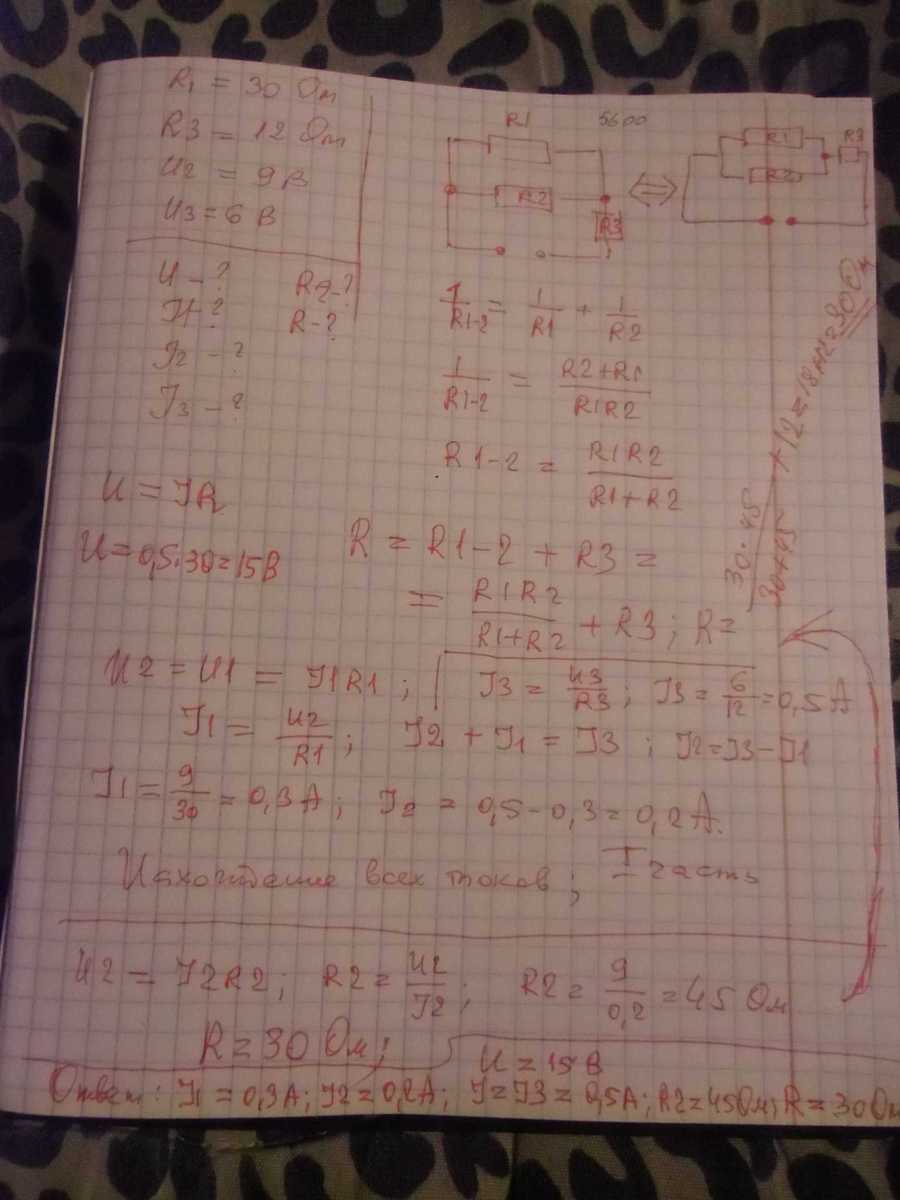 R1 = 30 Ом
R3 = 12 Ом
U2 = 9 В
U3 = 6 В
U - ? R2 - ?
I1 - ? R - ?
I2 - ?
I3 - ?
R1 5600 R1 R3
R2 R2
R3
1/R1-2 = 1/R1 + 1/R2
1/R1-2 = R2+R1/R1R2
R1-2 = R1R2/R1+R2
U = IR
U = 0,5·30 = 15В
R = R1-2 + R3 =
= R1R2/R1+R2 + R3 ; R = 30·45/30+45 + 12 = 18+12 = 30 Ом
U2 = U1 = I1R1 ; I3 = U3/R3 ; I3 = 6/12 = 0,5 А
I1 = U2/R1 ; I2 + I1 = I3 ; I2 = I3 - I1
I1 = 9/30 = 0,3 А ; I2 = 0,5 - 0,3 = 0,2 А.
Нахождение всех токов ; I часть
U2 = I2R2 ; R2 = U2/I2 ; R2 = 9/0,2 = 45 Ом
R = 30 Ом ;
U = 15 В
Ответ : I1 = 0,3А ; I2 = 0,2А ; I = I3 = 0,5А ; R2 = 45Ом ; R = 30Ом